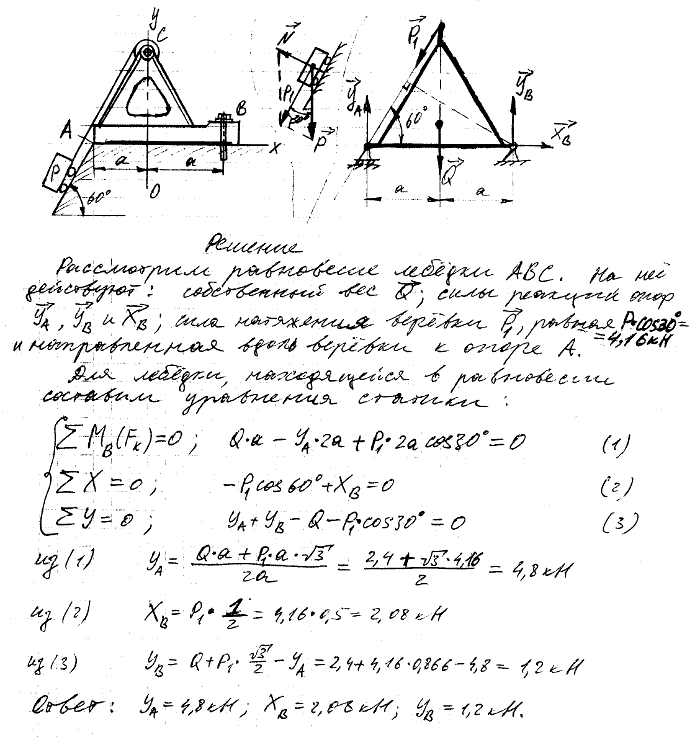 y
C
A
B
P
a
a
x
O
60°
N
P₁
30°
P
P₁
Y_A
60°
Y_B
X_B
Q
a
a
Решение
Рассмотрим равновесие лебёдки ABC. На неё
действуют: собственный вес Q; силы реакции опор
Y_A, Y_B и X_B; сила натяжения верёвки P₁, равная P·cos30°=
=4,16кН
и направленная вдоль верёвки к опоре A.
Для лебёдки, находящейся в равновесии
составим уравнения статики:
∑M_B(F_K)=0; Q·a − Y_A·2a + P₁·2a cos30° = 0 (1)
∑X=0; −P₁cos60°+X_B=0 (2)
∑Y=0; Y_A+Y_B−Q−P₁·cos30°=0 (3)
из (1) Y_A = (Q·a+P₁·a·√3)/2a = (2,4+√3·4,16)/2 = 4,8кН
из (2) X_B = P₁·1/2 = 4,16·0,5 = 2,08кН
из (3) Y_B = Q+P₁·√3/2−Y_A = 2,4+4,16·0,866−4,8 = 1,2кН
Ответ: Y_A=4,8кН; X_B=2,08кН; Y_B=1,2кН.